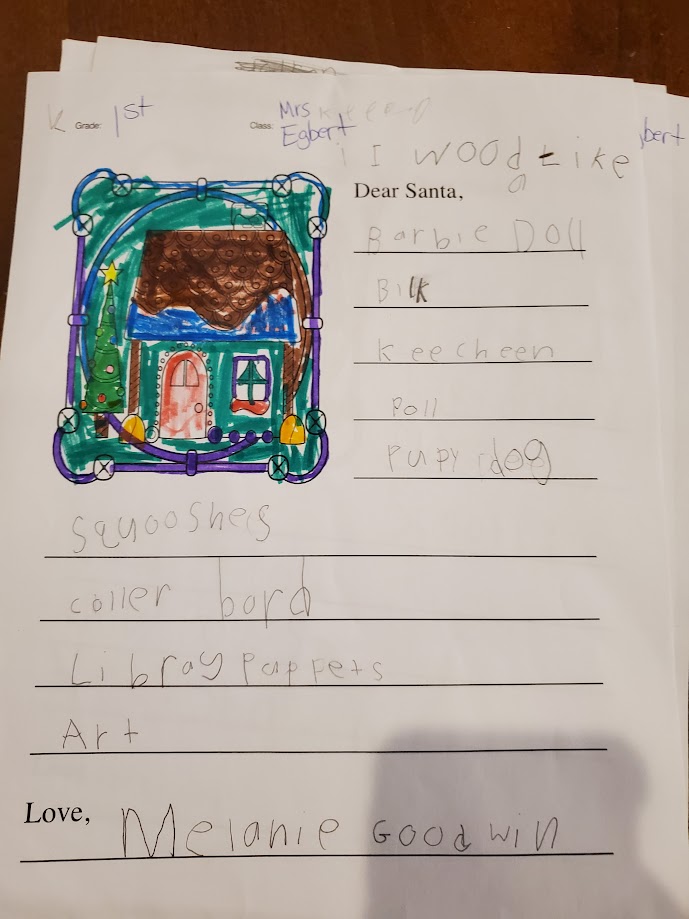 K Grade: 1st Class: Mrs
Egbert
bert
I WOOd Like
Dear Santa,
Barbie Doll
BIlK
Keecheen
Poll
Pupy dog
Squooshes
coller bord
Libray puppets
Art
Love, Melanie Goodwin